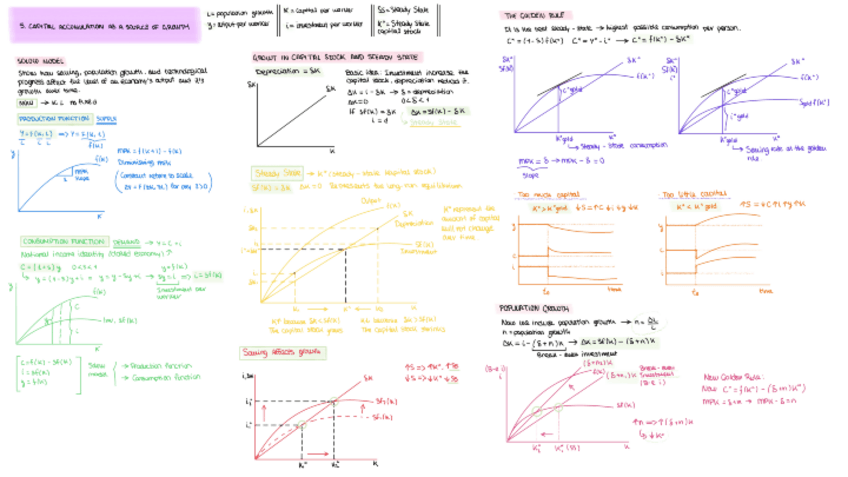 5. CAPITAL ACCUMULATION AS A SOURCE OF GROWTH
L = population growth
y = output per worker
K = capital per worker
i = investment per worker
SS = Steady State
K* = Steady State capital stock
SOLOW MODEL
Shows how saving, population growth, and technological
progress affect the level of an economy's output and its
growth over time.
PRODUCTION FUNCTION SUPPLY
MPK = f(K+1) - f(K)
Diminishing MPK
Constant returns to scale
for any z>0
y
f(K)
MPK
slope
K
CONSUMPTION FUNCTION: DEMAND → Y = C + i
National income identity (closed economy)
C = (1-s)y 0<s<1
y = f(K)
Investment per
worker
y
f(K)
C
i
Inv. sf(K)
K
C = f(K) - sf(K)
i = sf(K)
y = f(K)
Solow
model
→ Production function
→ Consumption function
GROWTH IN CAPITAL STOCK AND STEADY STATE
Depreciation = δK
δK
δK
K
Basic idea: Investment increase the
capital stock, depreciation reduces it.
ΔK = i - δK → δ = depreciation
ΔK = 0
0<δ<1
If sf(K) = δK
i = d
ΔK = sf(K) - δK
Steady State
Steady State → K* (steady-state capital stock)
Sf(K) = δK ΔK = 0 Represents the long-run equilibrium
i, δK
Output
f(K)
δK
Depreciation
sf(K)
Investment
K* represents the
amount of capital
will not change
over time.
K
The capital stock grows
The capital stock shrinks
Saving affects growth
↑S => ↑K*, ↑y
↓S => ↓K*, ↓y
i, δK
δK
K
THE GOLDEN RULE
It is the best steady-state → highest possible consumption per person.
C* = (1-s)f(K*) C* = y* - i* → C* = f(K*) - δK*
δK*
f(K*)
C*gold
K*gold
K*
Steady-State consumption
MPK = δ → MPK - δ = 0
slope
δK*
f(K*)
Sgold f(K*)
C*gold
i*gold
K*gold
K*
Saving rate at the golden
rule
Too much capital
K* > K*gold ↓S = ↑C ↓i ↓y ↓K
y
C
i
t₀
time
Too little capital
K* < K*gold ↑S = ↓C ↑i ↑y ↑K
y
C
i
t₀
time
POPULATION GROWTH
Now we include population growth → n = ΔL/L
n = population growth
ΔK = i - (δ+n)K → ΔK = sf(K) - (δ+n)K
Break-even investment
f(K)
(δ+n)K
Break-even
Investment
Sf(K)
K
↑n => ↑(δ+n)K
↓K*
New Golden Rule:
Now C* = f(K*) - (δ+n)K*
MPK = δ+n → MPK - δ = n